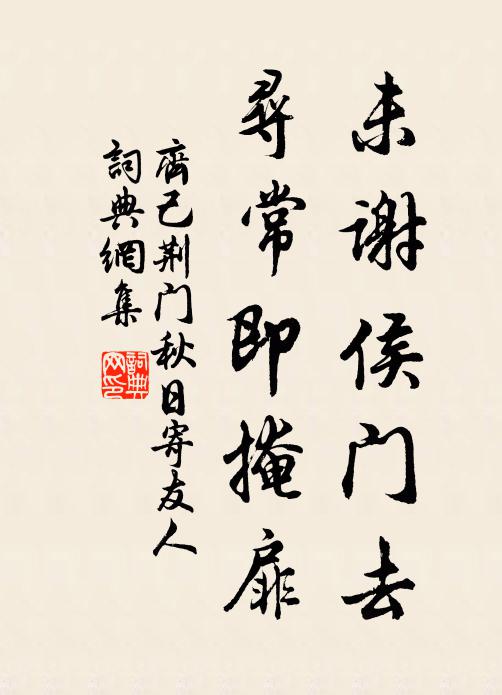 未謝侯门去
尋常即掩扉
齊己荆门秋日寄友人
詞典網集
詞典网印